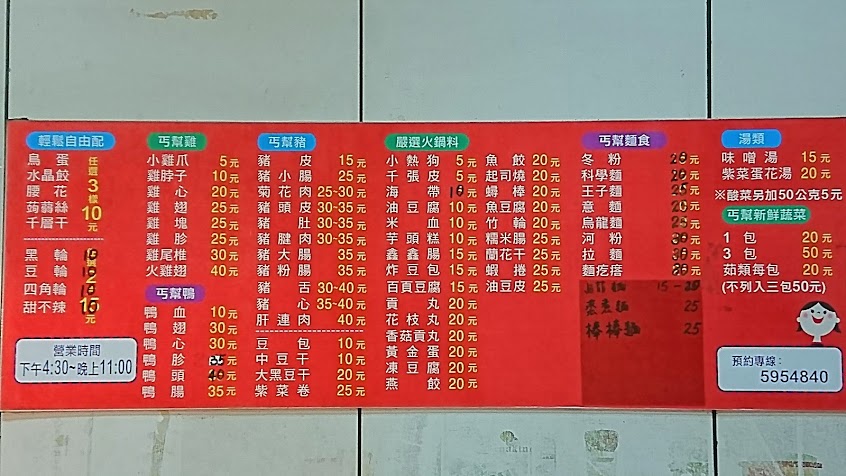 輕鬆自由配
鳥蛋
水晶餃
腰花
蒟蒻絲
千層干
任選3樣10元
黑輪
豆輪
四角輪
甜不辣
營業時間
下午4:30~晚上11:00
丐幫雞
小雞爪 5元
雞脖子 10元
雞心 20元
雞翅 25元
雞塊 25元
雞胗 25元
雞尾椎 30元
火雞翅 40元
丐幫鴨
鴨血 10元
鴨翅 30元
鴨心 30元
鴨胗 元
鴨頭 元
鴨腸 35元
丐幫豬
豬皮 15元
豬小腸 25元
菊花肉 25-30元
豬頭皮 30-35元
豬肚 30-35元
豬腱肉 30-35元
豬大腸 35元
豬粉腸 35元
豬舌 30-40元
豬心 35-40元
肝連肉 40元
豆包 10元
中豆干 10元
大黑豆干 20元
紫菜卷 25元
嚴選火鍋料
小熱狗 5元
千張皮 5元
海帶 10元
油豆腐 10元
米血 10元
芋頭糕 10元
鑫鑫腸 15元
炸豆包 15元
百頁豆腐 15元
貢丸 20元
花枝丸 20元
香菇貢丸 20元
黃金蛋 20元
凍豆腐 20元
燕餃 20元
魚餃 20元
起司燒 20元
蟳棒 20元
魚豆腐 20元
竹輪 20元
糯米腸 25元
蘭花干 25元
蝦捲 25元
油豆皮 25元
丐幫麵食
冬粉 元
科學麵 元
王子麵 元
意麵 元
烏龍麵 元
河粉 元
拉麵 元
麵疙瘩 元
15-20
25
棒棒麵 25
湯類
味噌湯 15元
紫菜蛋花湯 20元
※酸菜另加50公克5元
丐幫新鮮蔬菜
1包 20元
3包 50元
菇類每包 20元
(不列入三包50元)
預約專線:
5954840